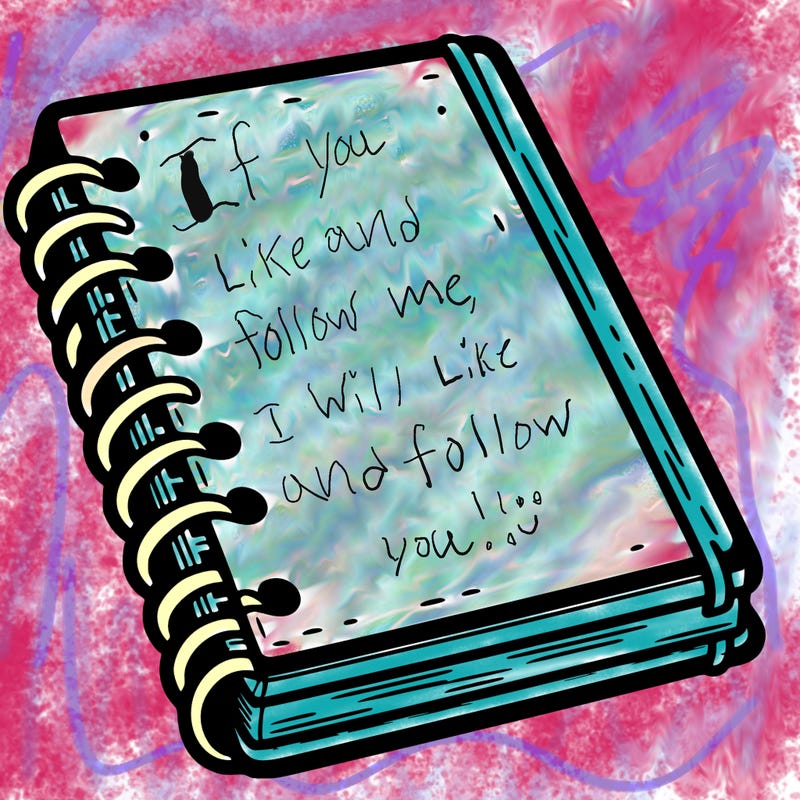 If you
Like and
follow me,
I will Like
and follow
you!! :)